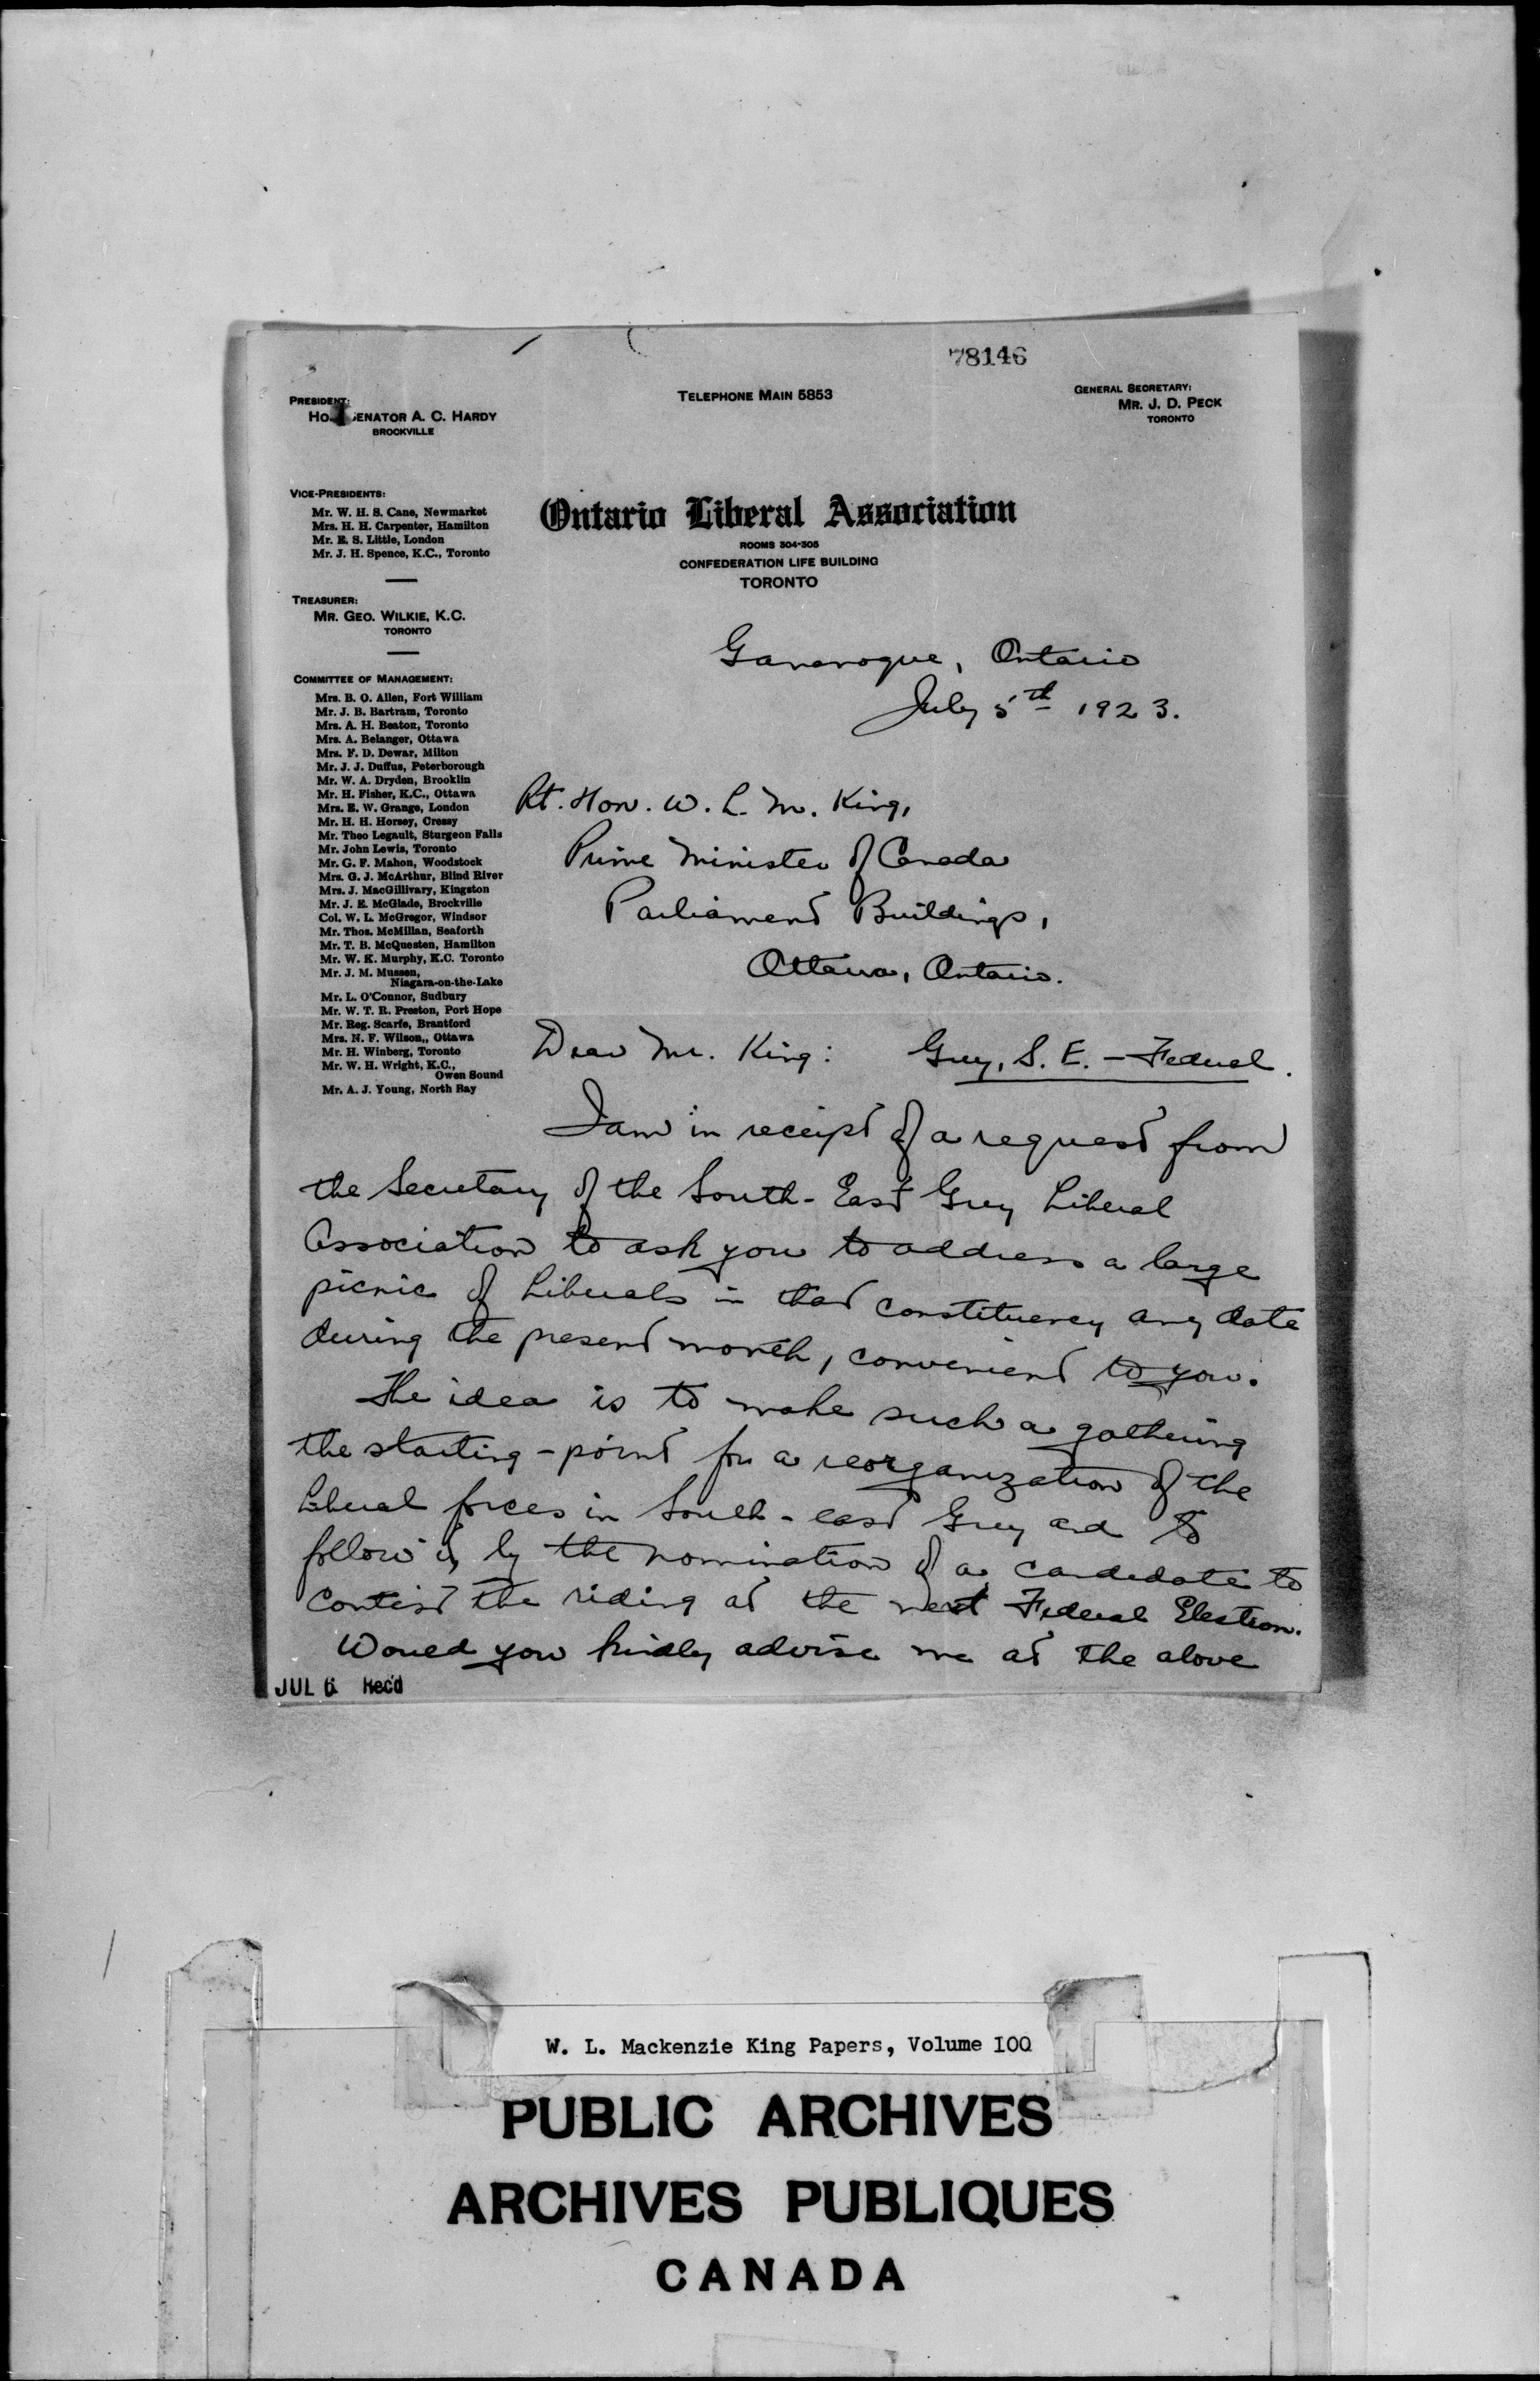 78146
PRESIDENT:
HON. SENATOR A. C. HARDY
BROCKVILLE
TELEPHONE MAIN 5853
GENERAL SECRETARY:
MR. J. D. PECK
TORONTO
VICE-PRESIDENTS:
Mr. W. H. S. Cane, Newmarket
Mrs. H. H. Carpenter, Hamilton
Mr. E. S. Little, London
Mr. J. H. Spence, K.C., Toronto
TREASURER:
MR. GEO. WILKIE, K.C.
TORONTO
COMMITTEE OF MANAGEMENT:
Mrs. B. O. Allen, Fort William
Mr. J. B. Bartram, Toronto
Mrs. A. H. Beaton, Toronto
Mrs. A. Belanger, Ottawa
Mrs. F. D. Dewar, Milton
Mr. J. J. Duffus, Peterborough
Mr. W. A. Dryden, Brooklin
Mr. H. Fisher, K.C., Ottawa
Mrs. E. W. Grange, London
Mr. H. H. Horsey, Cressy
Mr. Theo Legault, Sturgeon Falls
Mr. John Lewis, Toronto
Mr. G. F. Mahon, Woodstock
Mrs. G. J. McArthur, Blind River
Mrs. J. MacGillivary, Kingston
Mr. J. E. McGlade, Brockville
Col. W. L. McGregor, Windsor
Mr. Thos. McMillan, Seaforth
Mr. T. B. McQuesten, Hamilton
Mr. W. K. Murphy, K.C. Toronto
Mr. J. M. Mussen,
Niagara-on-the-Lake
Mr. L. O'Connor, Sudbury
Mr. W. T. R. Preston, Port Hope
Mr. Reg. Scarfe, Brantford
Mrs. N. F. Wilson,, Ottawa
Mr. H. Winberg, Toronto
Mr. W. H. Wright, K.C.,
Owen Sound
Mr. A. J. Young, North Bay
Ontario Liberal Association
ROOMS 304-305
CONFEDERATION LIFE BUILDING
TORONTO
Gananoque, Ontario
July 5th 1923.
Rt. Hon. W. L. M. King,
Prime Minister of Canada
Parliament Buildings,
Ottawa, Ontario.
Dear Mr. King: Grey, S. E. - Federal.
I am in receipt of a request from
the Secretary of the South-East Grey Liberal
Association to ask you to address a large
picnic of Liberals in that constituency any date
during the present month, convenient to you.
The idea is to make such a gathering
the starting-point for a reorganization of the
Liberal forces in South-east Grey and to
follow it by the nomination of a candidate to
contest the riding at the next Federal Election.
Would you kindly advise me at the above
JUL 6 Rec'd
W. L. Mackenzie King Papers, Volume 100
PUBLIC ARCHIVES
ARCHIVES PUBLIQUES
CANADA